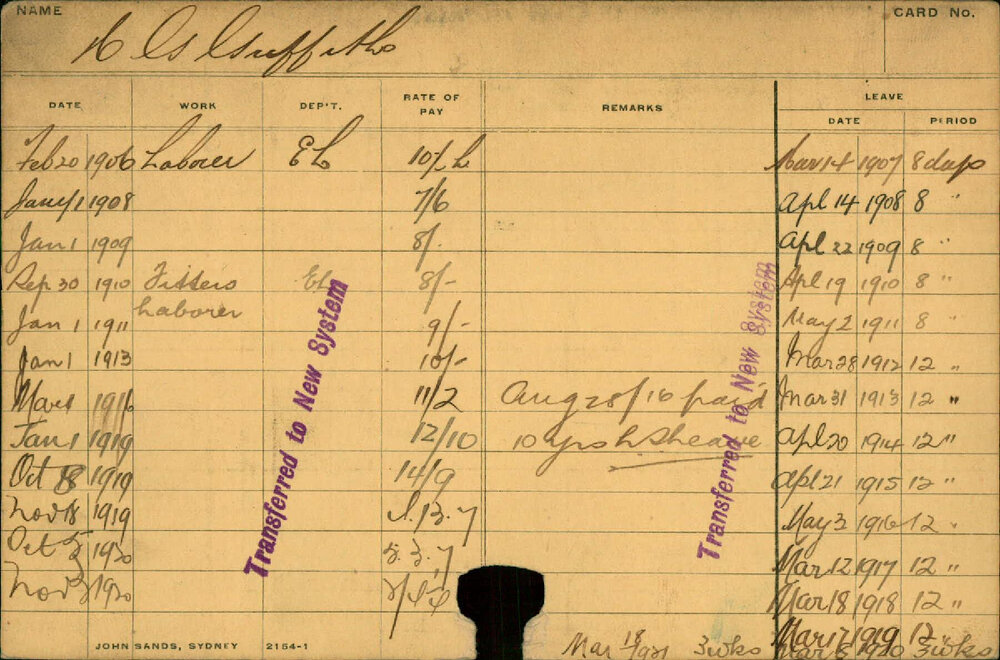 NAME
CARD No.
Griffiths
DATE WORK DEP'T. RATE OF PAY REMARKS LEAVE
DATE PERIOD
Feb 20 1906 Laborer EL Mar 14 1907 8 days
Jany 1 1908 7/6 Apl 14 1908 8 "
Jan 1 1909 8/- Apl 22 1909 8 "
Sep 30 1910 Fitters EL 8/- Apl 19 1910 8 "
Laborer
Jan 1 1911 9/- May 2 1911 8 "
Jan 1 1913 10/- Mar 28 1912 12 "
Mar 1 1916 11/2 Aug 28/16 paid Mar 31 1913 12 "
Jan 1 1919 12/10 10 yrs Apl 20 1914 12 "
Oct 1919 14/9 Apl 21 1915 12 "
Nov 18 1919 13.7 May 3 1916 12 "
Oct 1920 5.3.7 Mar 12 1917 12 "
Nov 1920 Mar 18 1918 12 "
Mar 17 1919 12
1920 3 wks
Mar 18/1921 3 wks
Transferred to New System
Transferred to New System
JOHN SANDS, SYDNEY 2154-1